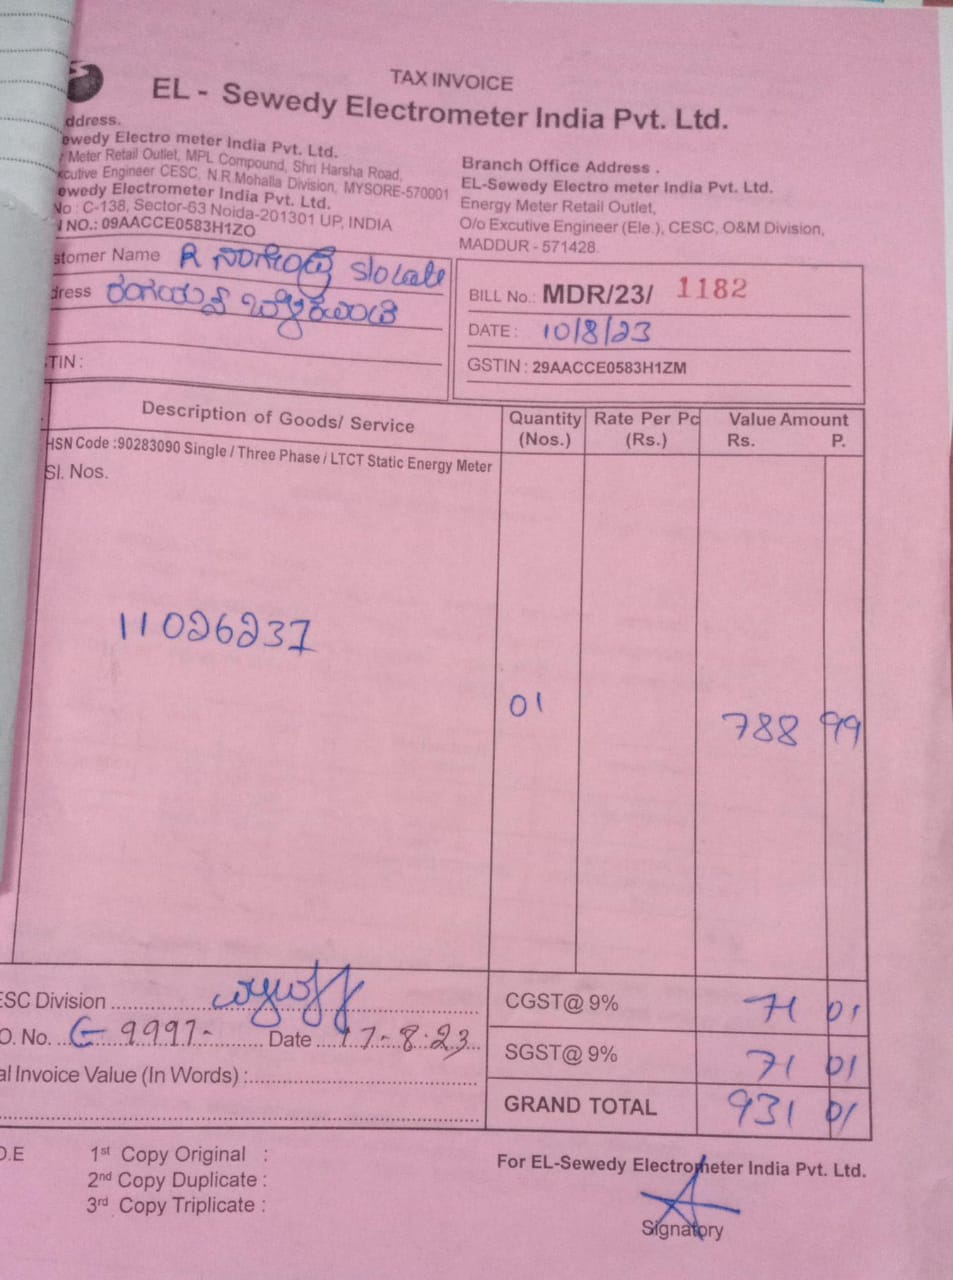 TAX INVOICE
EL - Sewedy Electrometer India Pvt. Ltd.
ddress.
ewedy Electro meter India Pvt. Ltd.
Meter Retail Outlet, MPL Compound, Shri Harsha Road,
cutive Engineer CESC, N.R.Mohalla Division, MYSORE-570001
ewedy Electrometer India Pvt. Ltd.
No : C-138, Sector-63 Noida-201301 UP, INDIA
NO.: 09AACCE0583H1ZO
Branch Office Address .
EL-Sewedy Electro meter India Pvt. Ltd.
Energy Meter Retail Outlet,
O/o Excutive Engineer (Ele.), CESC, O&M Division,
MADDUR - 571428.
stomer Name R S/o Late
dress
TIN :
BILL No.: MDR/23/ 1182
DATE : 10/8/23
GSTIN : 29AACCE0583H1ZM
Description of Goods/ Service Quantity (Nos.) Rate Per Pc (Rs.) Value Amount Rs. P.
HSN Code :90283090 Single / Three Phase / LTCT Static Energy Meter
Sl. Nos.
11026237
01 788 99
ESC Division
O. No. 9997 Date 17-8-23
al Invoice Value (In Words) :
CGST@ 9% 71 01
SGST@ 9% 71 01
GRAND TOTAL 931 01
O.E 1st Copy Original :
2nd Copy Duplicate :
3rd Copy Triplicate :
For EL-Sewedy Electrometer India Pvt. Ltd.
Signatory